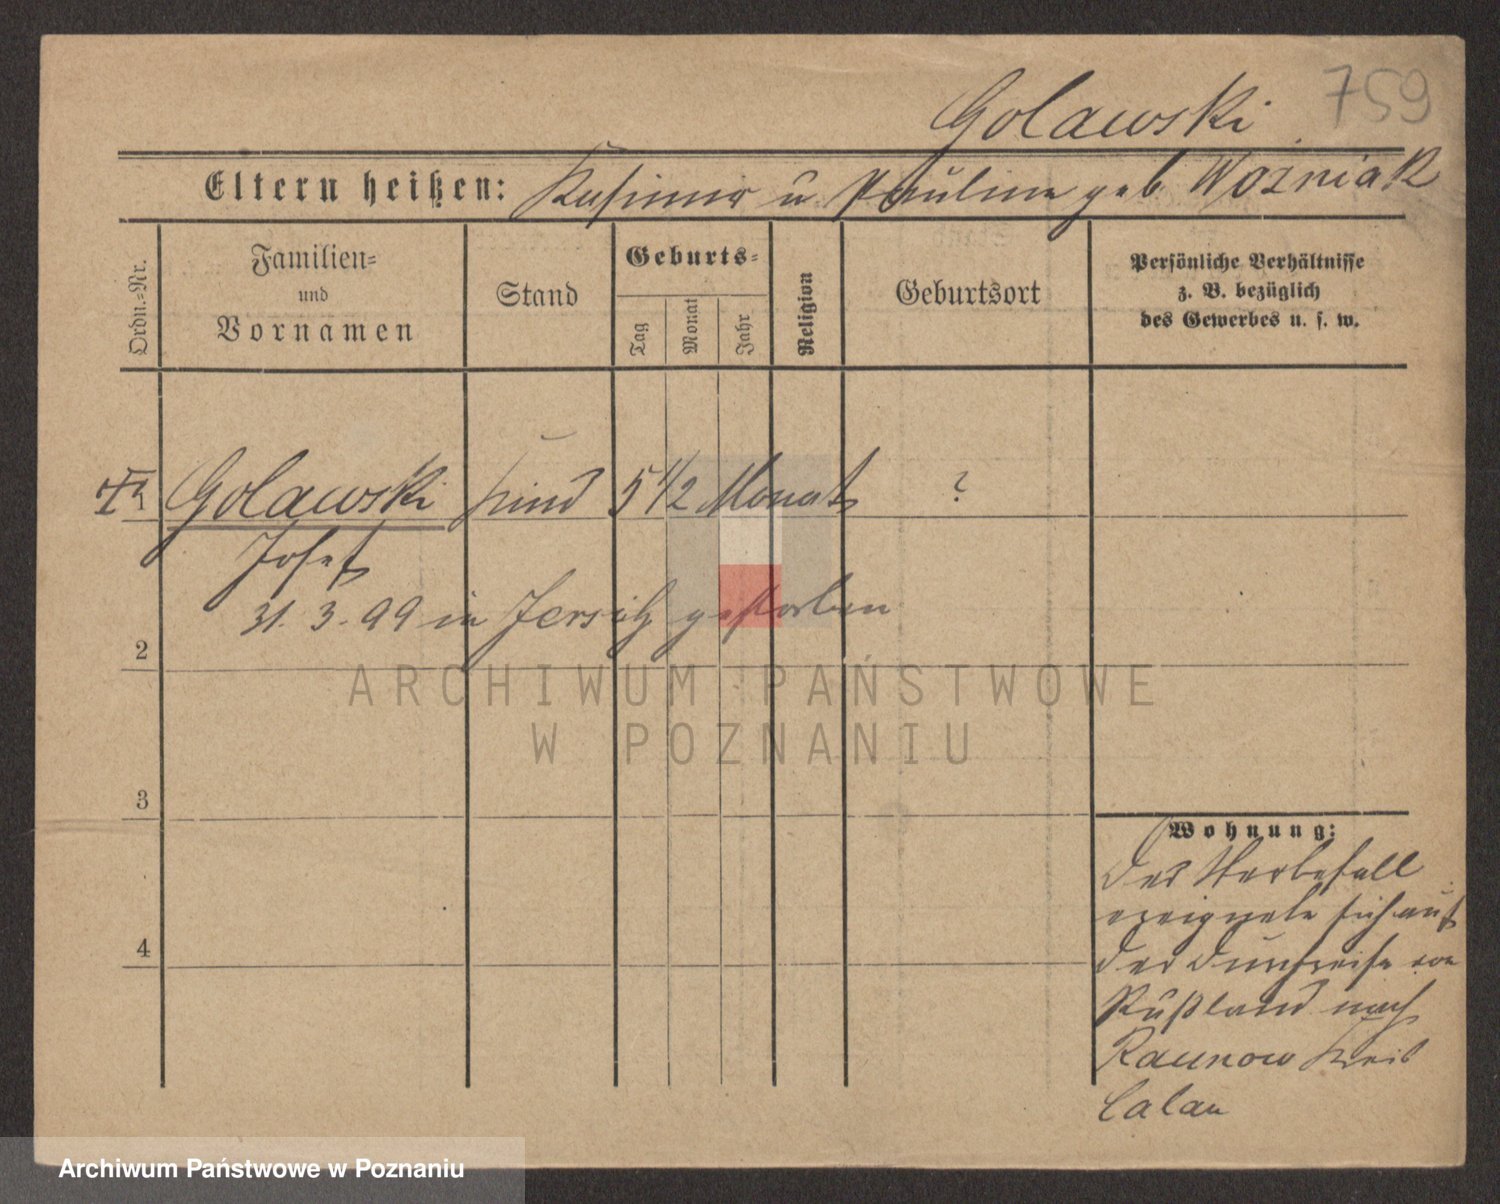 759
Golawski
Eltern heißen: Kasimir u Pauline geb Woźniak
Ordn.-Nr.
Familien-
und
Vornamen
Stand
Geburts-
Tag
Monat
Jahr
Religion
Geburtsort
Persönliche Verhältnisse
z. B. bezüglich
des Gewerbes u. s. w.
Golawski Kind 5 1/2 Monat ?
Josef
31. 3. 99 in Jersitz gestorben
2
3
4
Wohnung:
Der Sterbefall
ereignete sich auf
der Durchreise von
Rußland nach
Raunow Kreis
Calau
ARCHIWUM PAŃSTWOWE
W POZNANIU
Archiwum Państwowe w Poznaniu